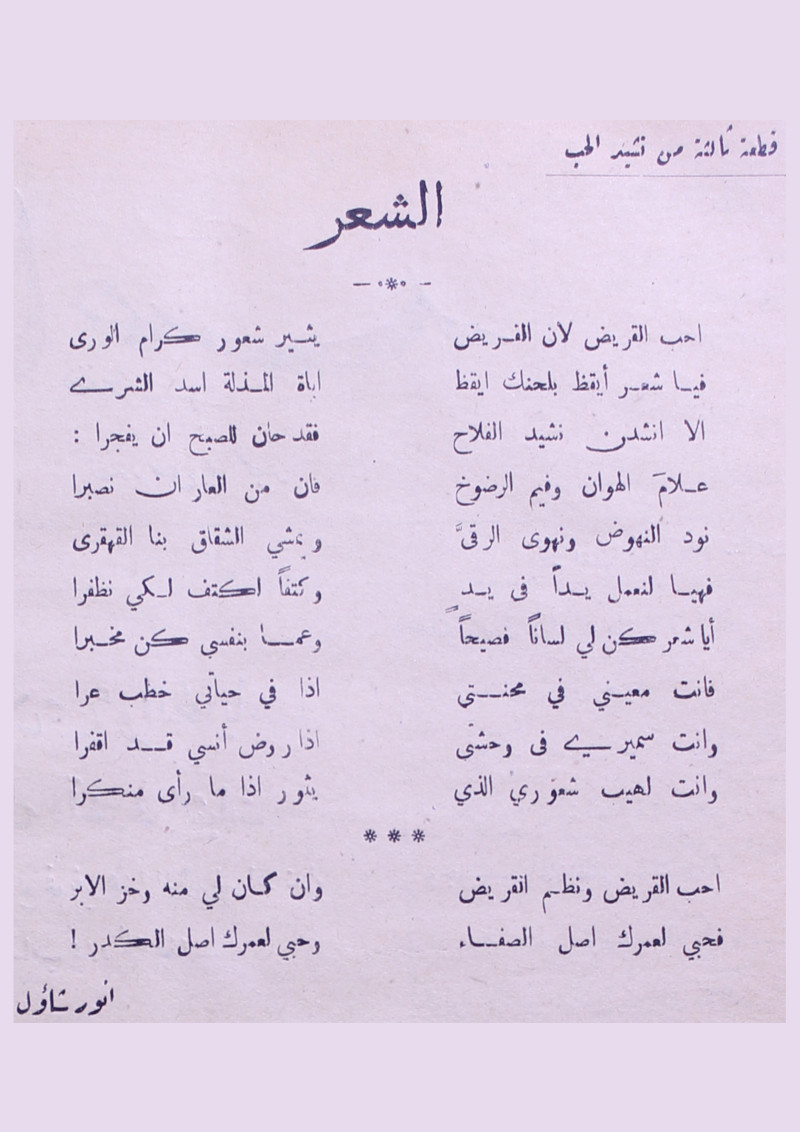 قطعة ثالثة من نشيد الحب
الشعر
احب القريض لان القريض يثير شعور كرام الورى
فيا شعر أيقظ بلحنك ايقظ اباة المذلة اسد الشرى
الا انشدن نشيد الفلاح فقد حان للصبح ان يفجرا :
علامَ الهوان وفيم الرضوخ فان من العار ان نصبرا
نود النهوض ونهوى الرقيَّ ويمشي الشقاق بنا القهقرى
فهيا لنعمل يداً فى يدٍ وكتفاً اكتف لكي نظفرا
أيا شعر كن لي لساناً فصيحاً وعما بنفسي كن مخبرا
فانت معيني في محنتي اذا في حياتي خطب عرا
وانت سميري فى وحشتى اذا روض أنسي قد اقفرا
وانت لهيب شعوري الذي يثور اذا ما رأى منكرا
* * *
احب القريض ونظم القريض وان كان لي منه وخز الابر
فحبي لعمرك اصل الصفاء وحبي لعمرك اصل الكدر !
انور شاؤل